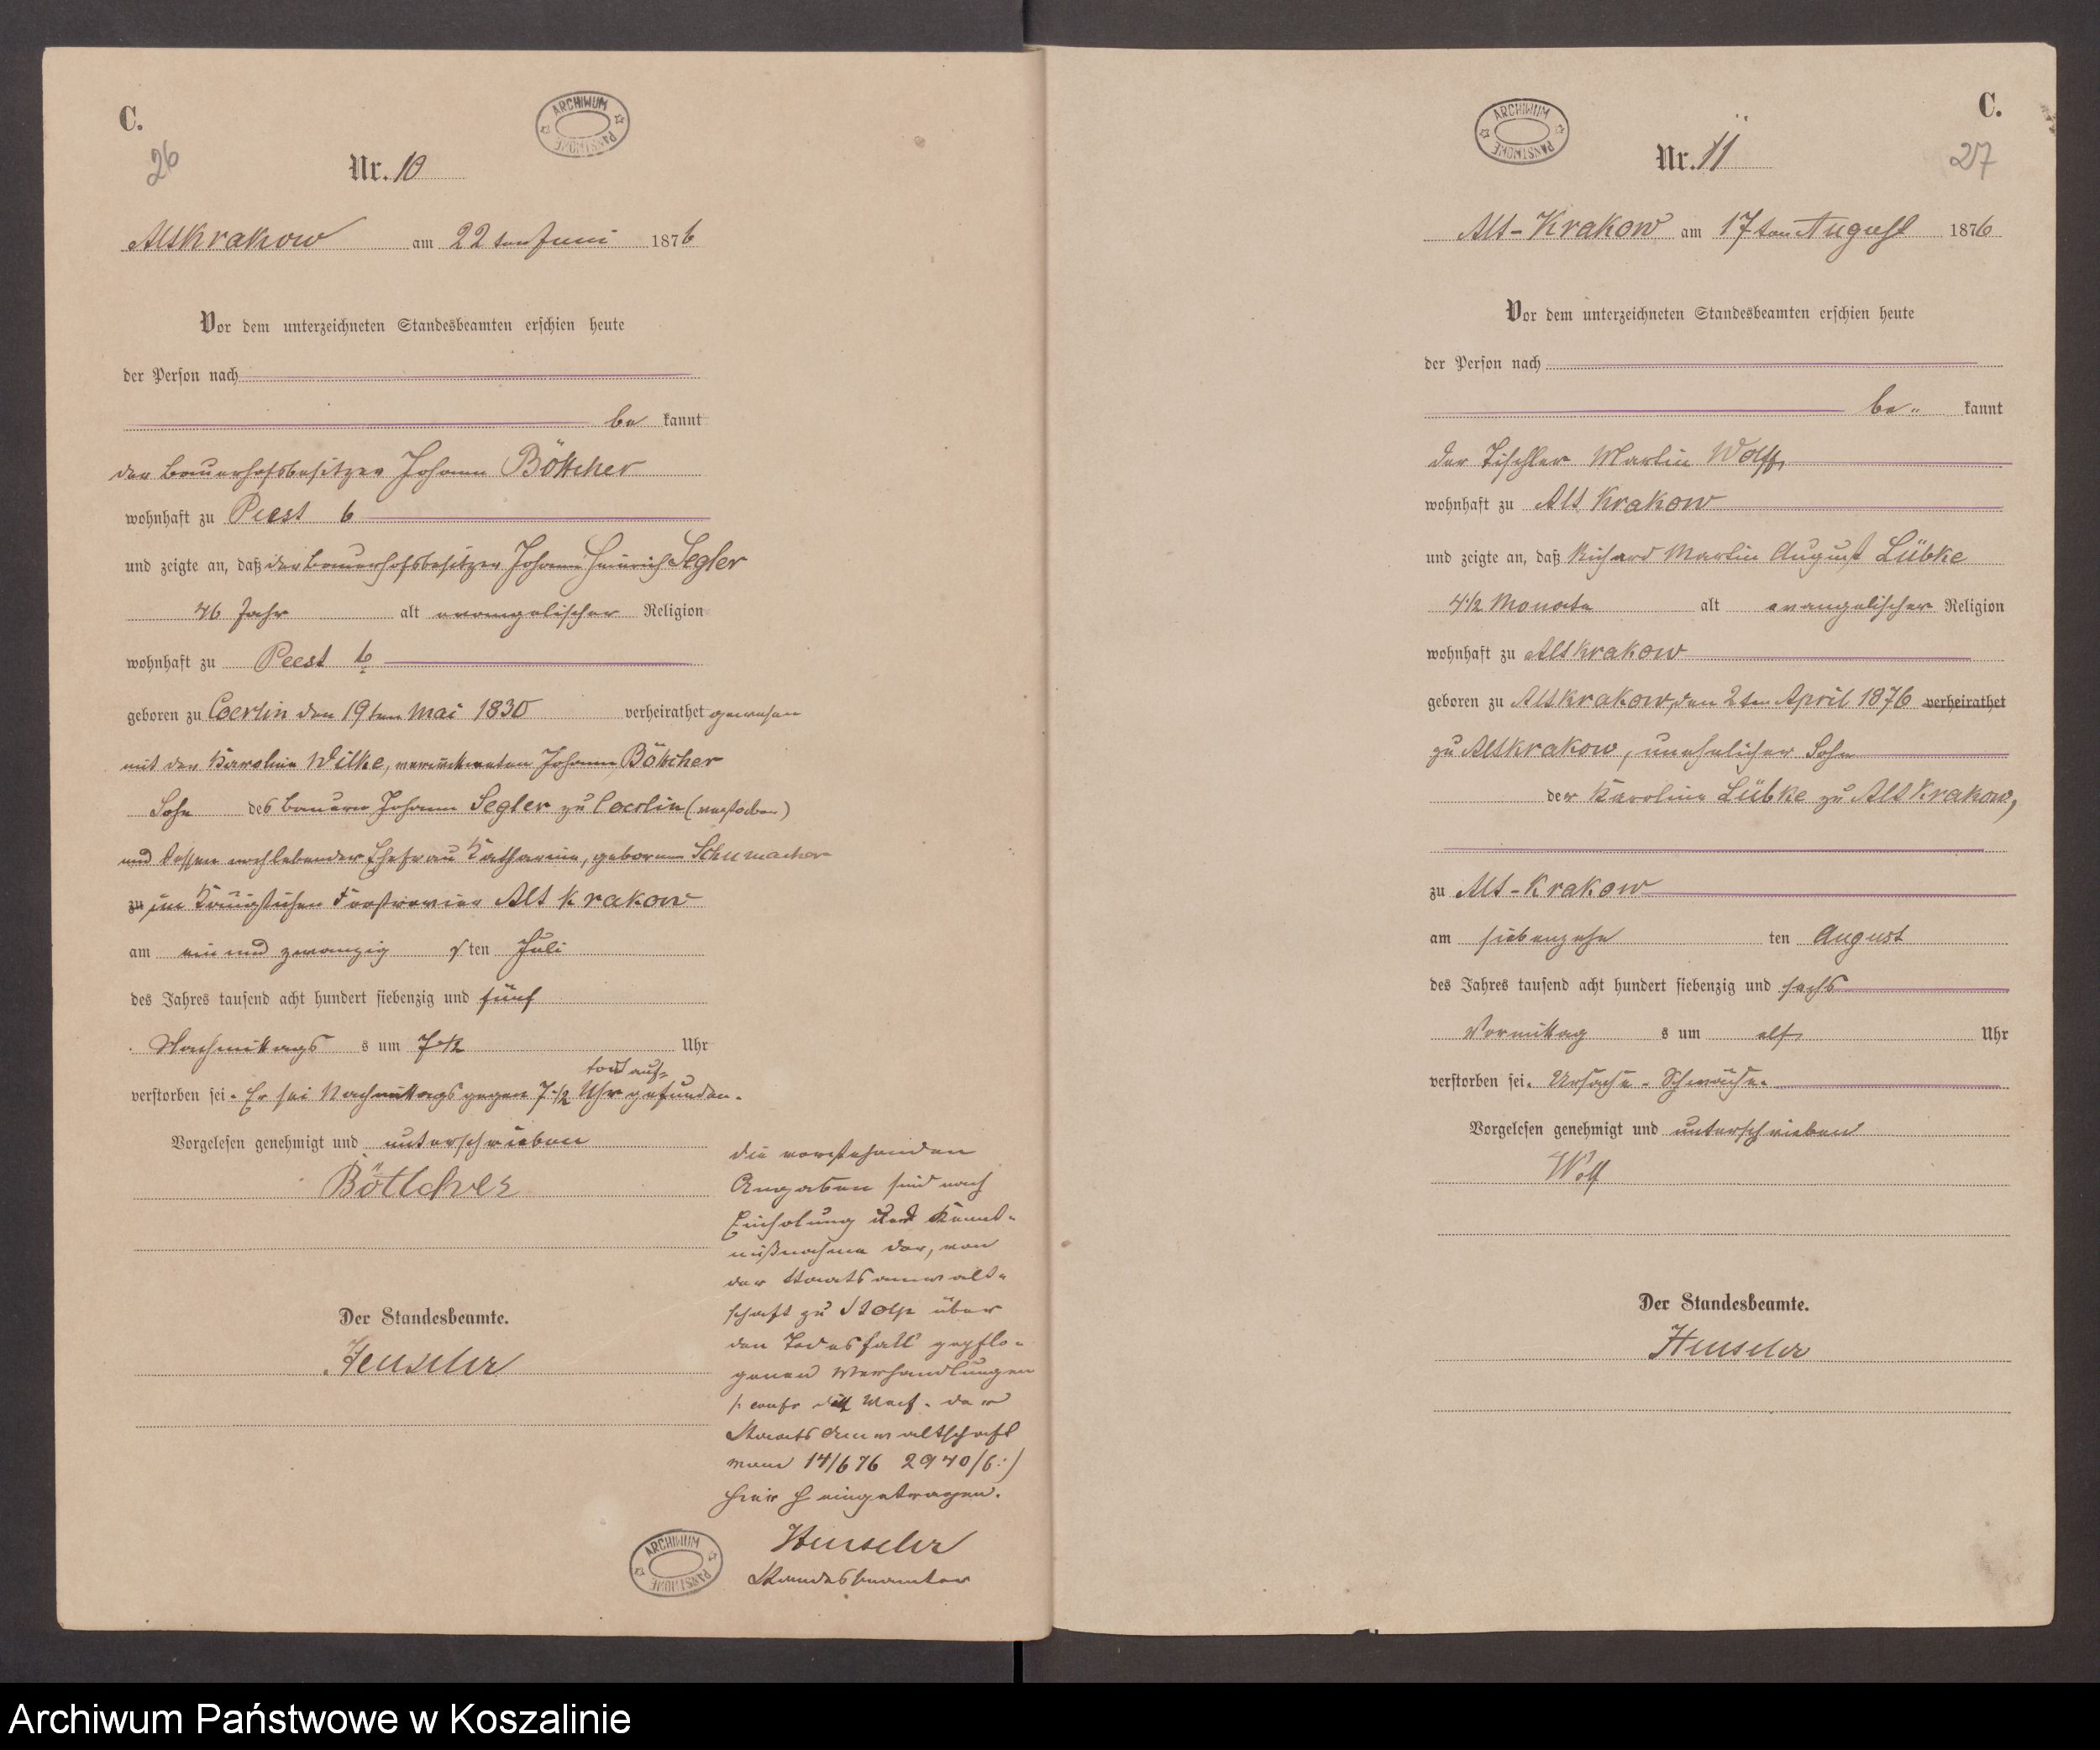 C.
26
ARCHIWUM PAŃSTWOWE
Nr. 10
AltKrakow am 22ten Juni 1876
Vor dem unterzeichneten Standesbeamten erschien heute
der Person nach
be kannt
der Bauerhofsbesitzer Johann Böttcher
wohnhaft zu Peest b
und zeigte an, daß der Bauerhofsbesitzer Johann Heinrich Segler
46 Jahr alt evangelischer Religion
wohnhaft zu Peest b
geboren zu Coerlin den 19ten Mai 1830 verheirathet gewesen
mit der Karoline Wilke, verwittweten Johann Böttcher
Sohn des Bauern Johann Segler zu Coerlin (verstorben)
und dessen noch lebender Ehefrau Katharine, geborene Schumacher
zu im Königlichen Forstrevier Alt Krakow
am ein und zwanzig sten Juli
des Jahres tausend acht hundert siebenzig und fünf
Nachmittags s um 7 1/2 Uhr
todt auf=
verstorben sei. Er sei Nachmittags gegen 7 1/2 Uhr gefunden.
Vorgelesen genehmigt und unterschrieben
Böttcher
Der Standesbeamte.
Heuseler
die vorstehenden
Angaben sind nach
Einholung und Kennt-
nißnahme der, von
der Staatsanwalt-
schaft zu Stolp über
den Todesfall gepflo-
genen Verhandlungen
der
Staatsanwaltschaft
vom 14/6 76 2940/6:)
hier eingetragen.
Heuseler
Standesbeamter
ARCHIWUM PAŃSTWOWE
C.
27
ARCHIWUM PAŃSTWOWE
Nr. 11
Alt-Krakow am 17ten August 1876
Vor dem unterzeichneten Standesbeamten erschien heute
der Person nach
be- kannt
der Tischler Martin Wolff
wohnhaft zu Alt Krakow
und zeigte an, daß Richard Martin August Lübke
4 1/2 Monate alt evangelischer Religion
wohnhaft zu AltKrakow
geboren zu AltKrakow, den 2ten April 1876 verheirathet
zu AltKrakow, unehelicher Sohn
der Karoline Lübke zu Alt Krakow,
zu Alt-Krakow
am siebenzehn ten August
des Jahres tausend acht hundert siebenzig und sechs
Vormittag s um elf Uhr
verstorben sei. Ursache. Schwäche.
Vorgelesen genehmigt und unterschrieben
Wolf
Der Standesbeamte.
Heuseler
Archiwum Państwowe w Koszalinie